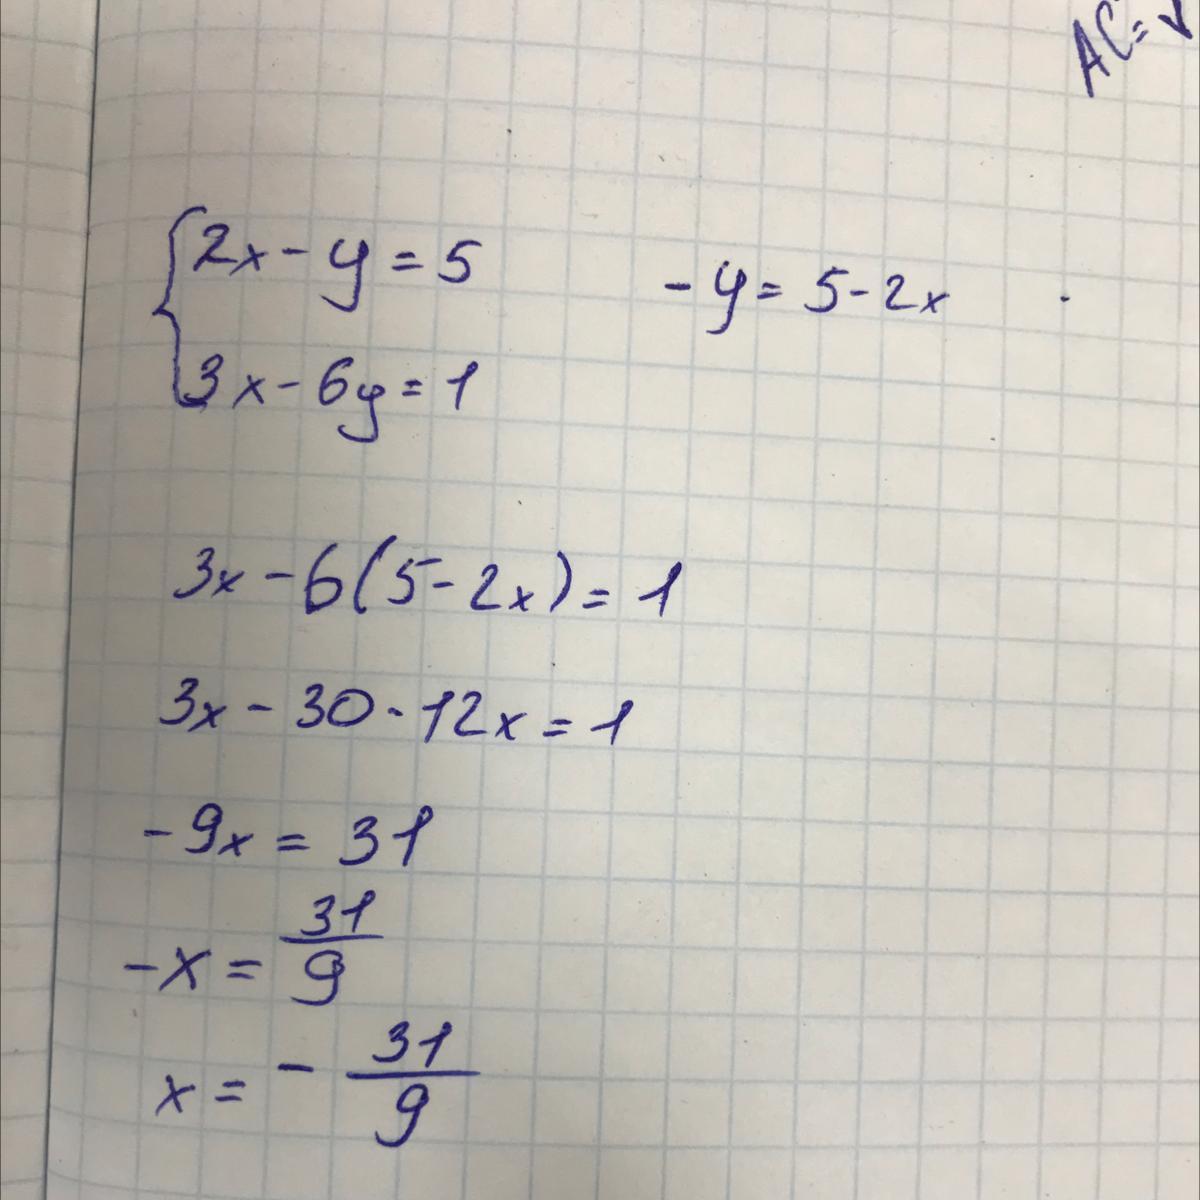 AC=
2x - y = 5
- y = 5 - 2x
3x - 6y = 1
3x - 6(5 - 2x) = 1
3x - 30 - 12x = 1
-9x = 31
-x = 31/9
x = - 31/9